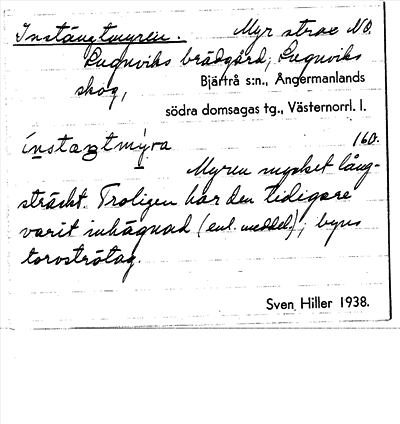 Instängtmyren. Myr strax NO.
Lugnviks brädgård, Lugnviks
skog,
Bjärtrå s:n., Ångermanlands
södra domsagas tg., Västernorrl. l.
160.
Myren mycket lång-
sträckt. Troligen har den tidigare
varit inhägnad (enl. meddel.); byns
torvströtag.
Sven Hiller 1938.